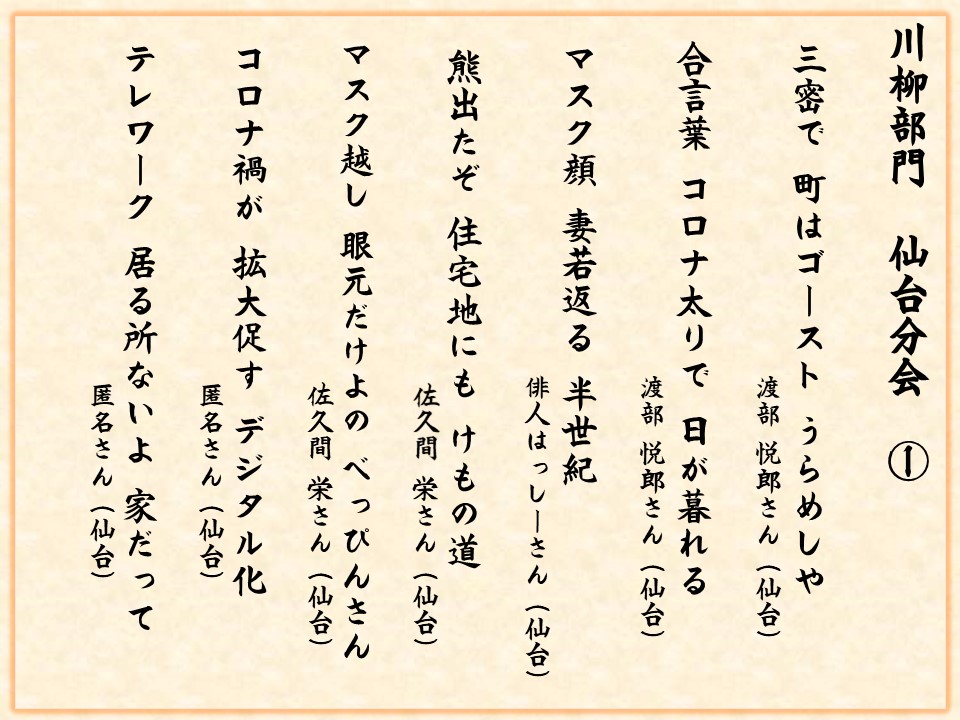 川柳部門　仙台分会　①
三密で　町はゴースト　うらめしや
渡部　悦郎さん（仙台）
合言葉　コロナ太りで　日が暮れる
渡部　悦郎さん（仙台）
マスク顔　妻若返る　半世紀
俳人はっしーさん（仙台）
熊出たぞ　住宅地にも　けもの道
佐久間　栄さん（仙台）
マスク越し　眼元だけよの　べっぴんさん
佐久間　栄さん（仙台）
コロナ禍が　拡大促す　デジタル化
匿名さん（仙台）
テレワーク　居る所ないよ　家だって
匿名さん（仙台）